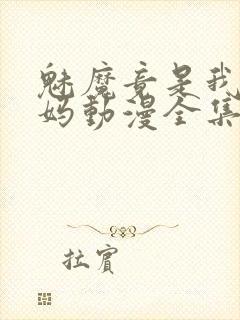 魅魔竟是我
妈動漫全集
拉賓